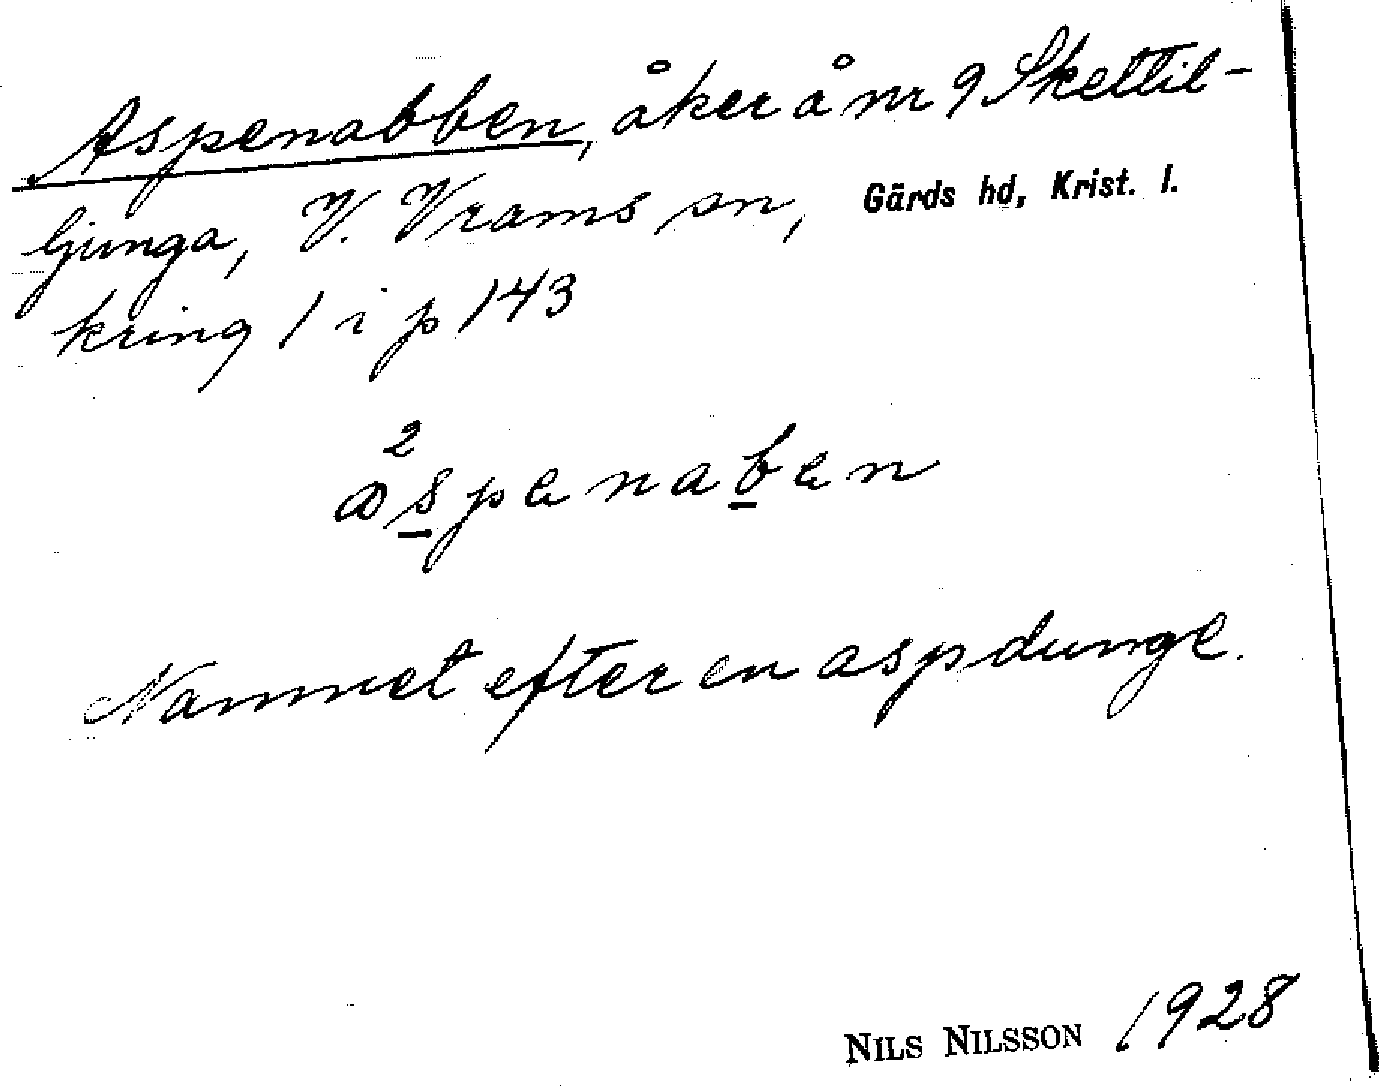 Aspenabben, åker å nr 9 Skettil-
ljunga, V. Vrams sn, Gärds hd, Krist. l.
kring 1 i p 143
a²spenaben
Namnet efter en aspdunge.
NILS NILSSON 1928